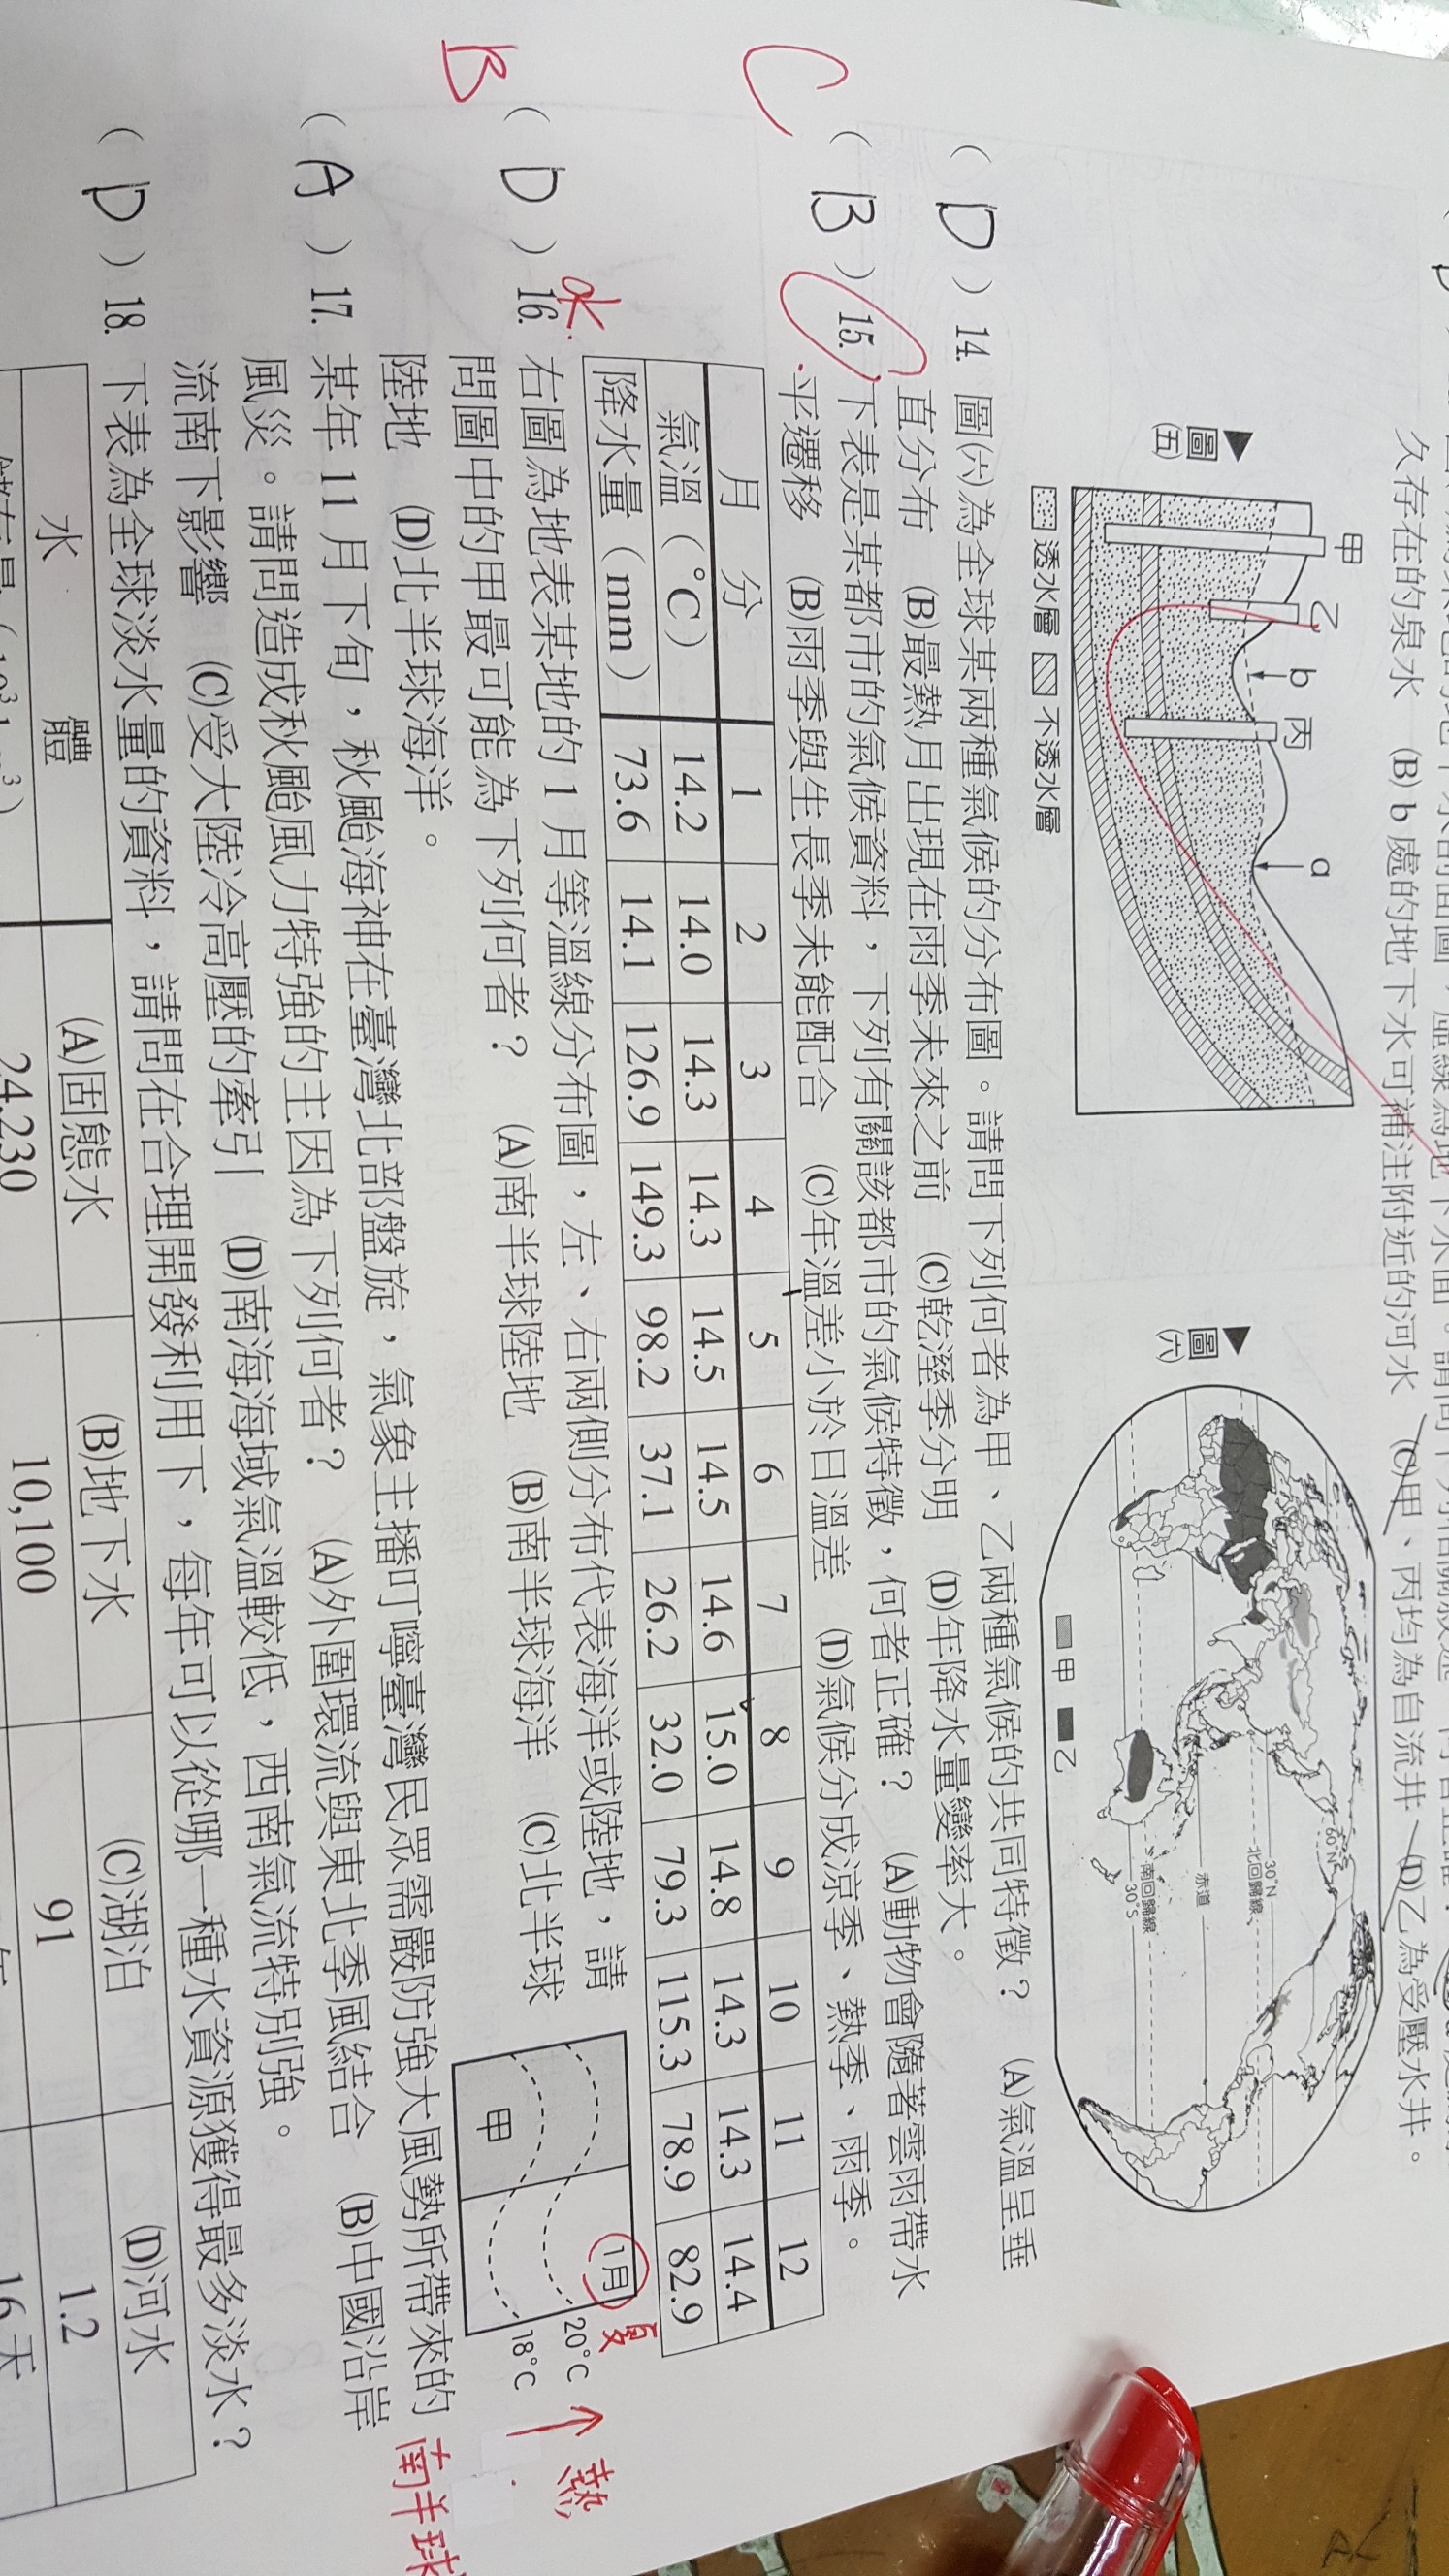 久存在的泉水 (B) b 處的地下水可補注附近的河水 (C)甲、丙均為自流井 (D)乙為受壓水井。
甲 乙 b 丙 a
▲圖(五)
透水層 不透水層
▲圖(六)
60°N
30°N
北回歸線
赤道
南回歸線
30°S
甲 乙
( D ) 14. 圖(六)為全球某兩種氣候的分布圖。請問下列何者為甲、乙兩種氣候的共同特徵? (A)氣溫呈垂
直分布 (B)最熱月出現在雨季未來之前 (C)乾溼季分明 (D)年降水量變率大。
C ( B ) 15. 下表是某都市的氣候資料,下列有關該都市的氣候特徵,何者正確? (A)動物會隨著雲雨帶水
平遷移 (B)雨季與生長季未能配合 (C)年溫差小於日溫差 (D)氣候分成涼季、熱季、雨季。
月 分 1 2 3 4 5 6 7 8 9 10 11 12
氣溫(°C) 14.2 14.0 14.3 14.3 14.5 14.5 14.6 15.0 14.8 14.3 14.3 14.4
降水量(mm) 73.6 14.1 126.9 149.3 98.2 37.1 26.2 32.0 79.3 115.3 78.9 82.9
B ( D ) 16. 右圖為地表某地的 1 月等溫線分布圖,左、右兩側分布代表海洋或陸地,請
問圖中的甲最可能為下列何者? (A)南半球陸地 (B)南半球海洋 (C)北半球
陸地 (D)北半球海洋。
1月 夏
甲
20°C
18°C
熱
南半球
( A ) 17. 某年 11 月下旬,秋颱海神在臺灣北部盤旋,氣象主播叮嚀臺灣民眾需嚴防強大風勢所帶來的
風災。請問造成秋颱風力特強的主因為下列何者? (A)外圍環流與東北季風結合 (B)中國沿岸
流南下影響 (C)受大陸冷高壓的牽引 (D)南海海域氣溫較低,西南氣流特別強。
( D ) 18. 下表為全球淡水量的資料,請問在合理開發利用下,每年可以從哪一種水資源獲得最多淡水?
水 體 (A)固態水 (B)地下水 (C)湖泊 (D)河水
24,230 10,100 91 1.2
16天